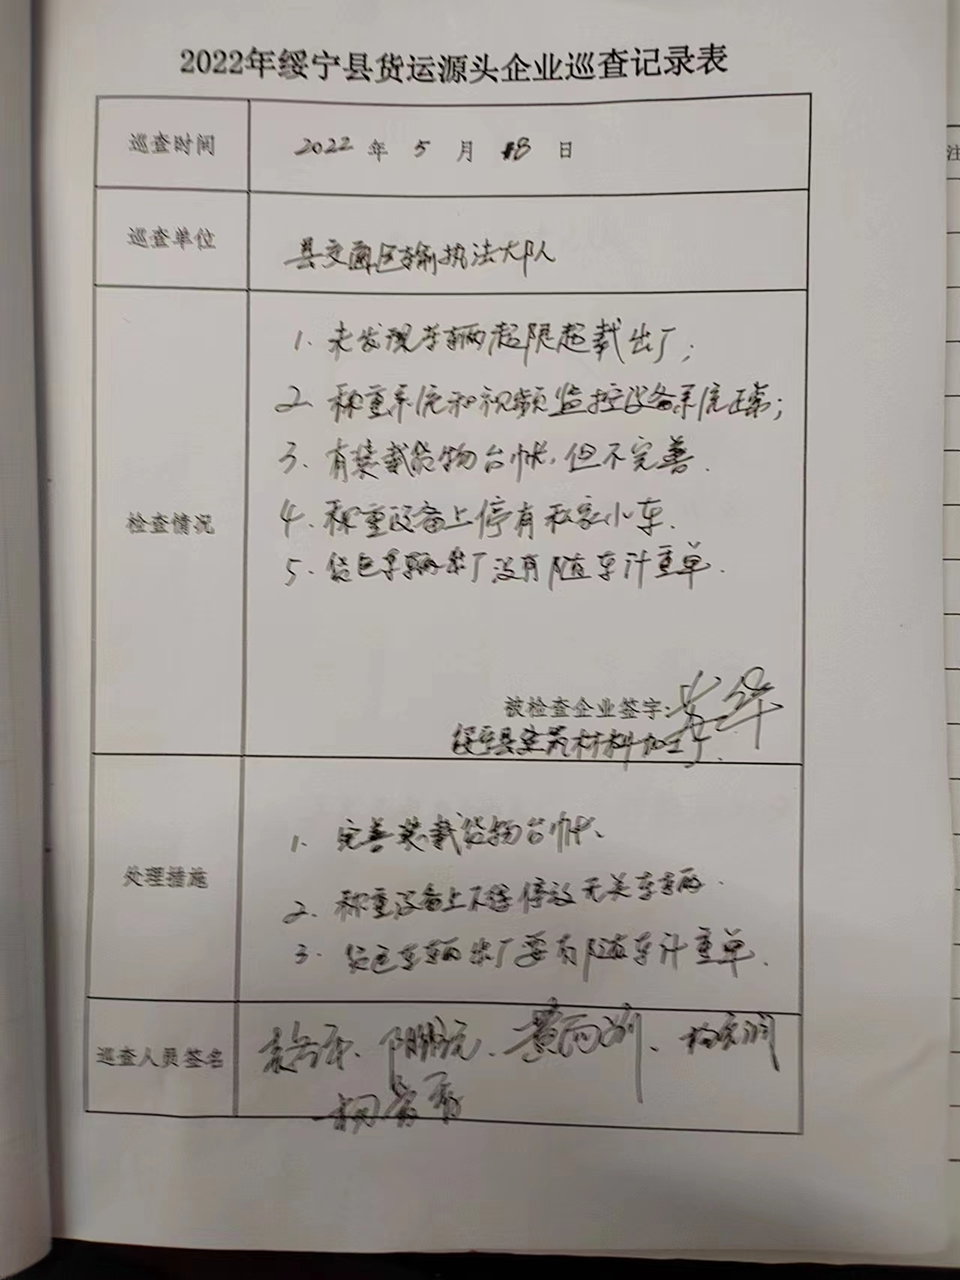 2022年绥宁县货运源头企业巡查记录表
巡查时间 2022 年 5 月 18 日
巡查单位 县交通运输执法大队
检查情况
1. 未发现车辆超限超载出厂;
2. 称重系统和视频监控设备系统正常;
3. 有装载货物台帐,但不完善.
4. 称重设备上停有私家小车.
5. 货运车辆出厂没有随车计重单.
被检查企业签字:
绥宁县宏茂材料加工厂.
处理措施
1. 完善装载货物台帐、
2. 称重设备上不得停放无关车辆.
3. 货运车辆出厂要有随车计重单.
巡查人员签名
黄雨洲、